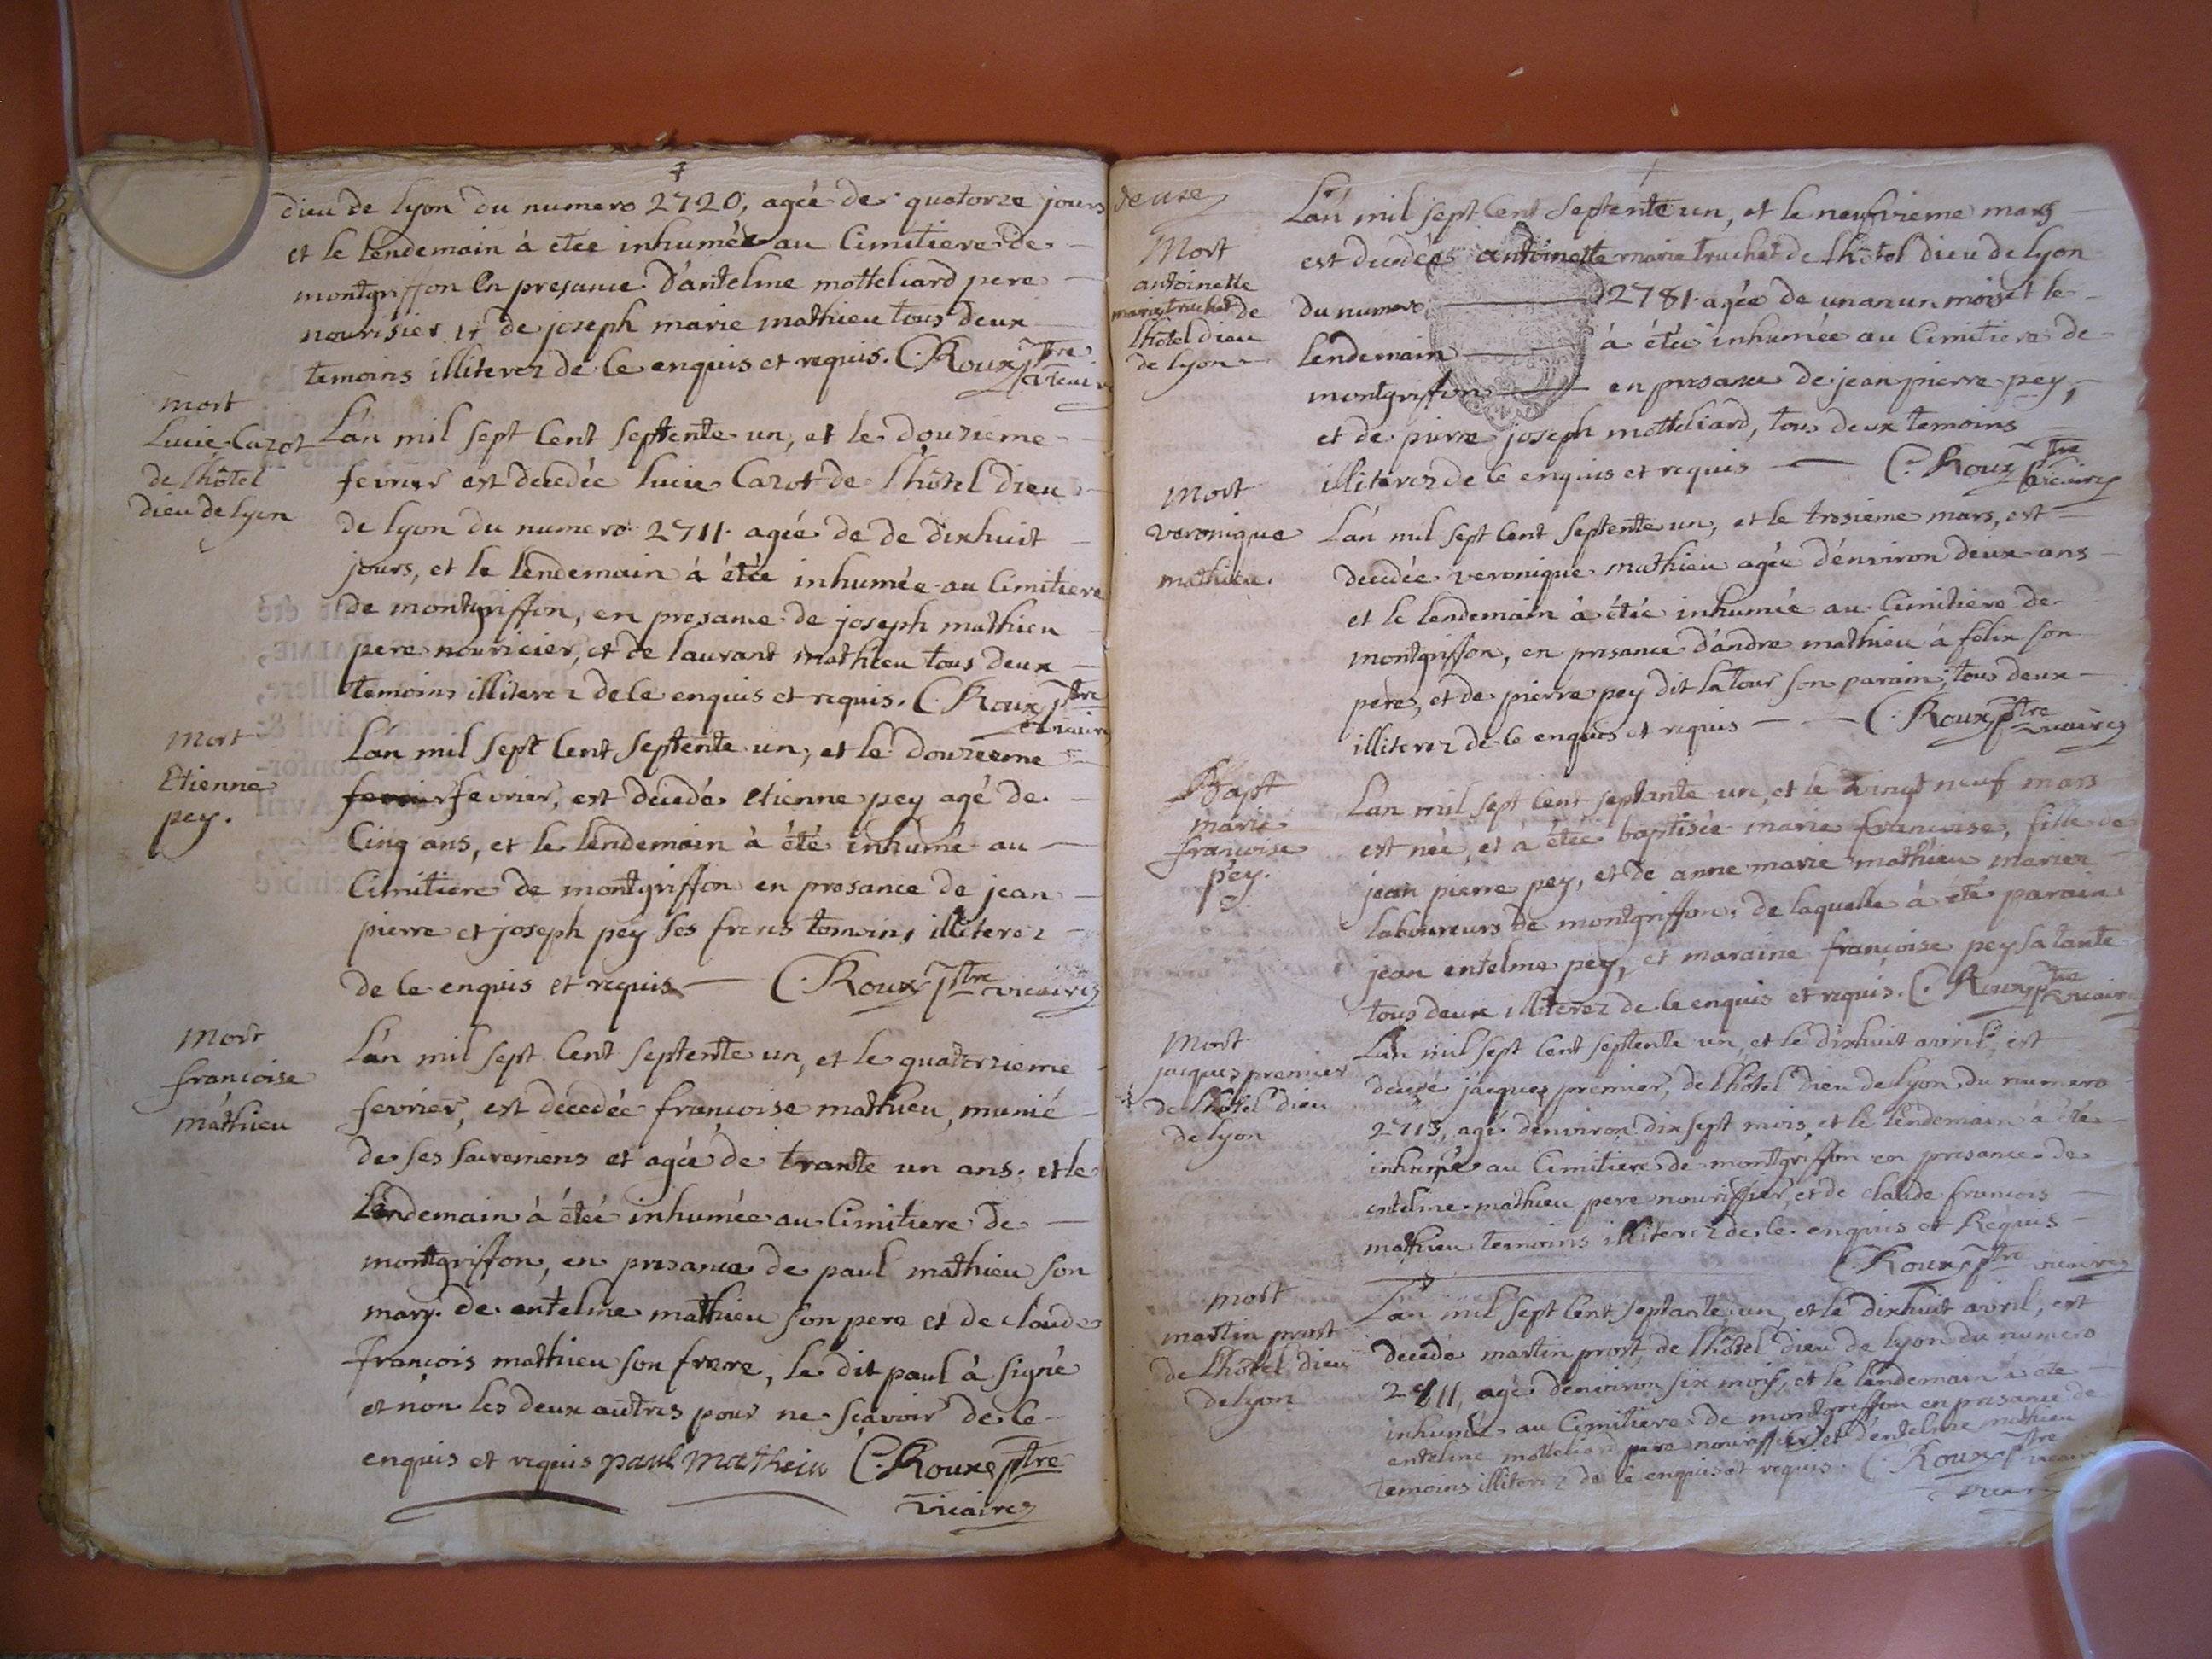 dieu de lyon du numero 2720, agée de quatorze jours
et le lendemain à étée inhumée au Cimitiere de
montgriffon En presance d'antelme motteliard pere
nourisier, et de joseph marie mathieu tous deux
temoins illiterez de ce enquis et requis. C. Roux ptre vicaire
mort
Lucie Cazot
de lhôtel
dieu de lyon
L'an mil sept Cent septente un, et le douzieme
fevrier est decedée lucie Cazot de lhôtel dieu
de lyon du numero 2711. agée de de dixhuit
jours, et le lendemain à étée inhumée au Cimitiere
de montgriffon, en presance de joseph mathieu
pere nouricier, et de laurant mathieu tous deux
temoins illiterez de ce enquis et requis. C. Roux ptre
vicaire
Mort
Etienne
pey.
L'an mil sept Cent septente un, et le douzeeme
fevrier, est décedé etienne pey agé de
Cinq ans, et le lendemain à été inhumé au
Cimitiere de montgriffon en presance de jean
pierre et joseph pey ses freres temoins illiterez
de ce enquis et requis C. Roux ptre vicaire
Mort
francoise
mathieu
L'an mil sept Cent septente un, et le quatorzieme
fevrier, est décedée francoise mathieu, munié
de ses sacremens et agée de trante un ans. et le
lendemain à étée inhumée au Cimitiere de
montgriffon, en presance de paul mathieu son
mary. de entelme mathieu son pere et de claude
francois mathieu son frere, le dit paul à signé
et non les deux autres pour ne sçavoir de ce
enquis et requis paul matheiu C. Roux ptre
vicaire
deuxe
Mort
antoinette
marie truchet de
lhôtel dieu
de lyon
L'an mil sept Cent septente un, et le neufvieme mars
est decedée antoinette marie truchet de lhôtel dieu de lyon
du numero 2781. agée de un an un mois et le
lendemain à étée inhumée au Cimitiere de
montgriffon en presance de jean pierre pey,
et de pierre joseph motteliard, tous deux temoins
illiterez de ce enquis et requis C. Roux ptre
vicaire
Mort
veronique
mathieu.
L'an mil sept Cent septente un, et le trosieme mars, est
decedée veronique mathieu agée d'environ deux ans
et le lendemain à étée inhumée au Cimitiere de
montgriffon, en presance d'andre mathieu à felix son
pere, et de pierre pey dit latour son parain, tous deux
illiterez de ce enquis et requis C. Roux ptre
vicaire
Bapt
marie
francoise
pey.
L'an mil sept Cent septante un, et le vingt neuf mars
est née, et à étée baptisée marie francoise, fille de
jean pierre pey, et de anne marie mathieu mariez
laboureurs de montgriffon, de laquelle à été parain
jean entelme pey, et maraine françoise pey sa tante
tous deux illiterez de ce enquis et requis. C. Roux ptre vicaire
Mort
jacques premier
de lhôtel dieu
de lyon
L'an mil sept Cent septente un, et le dixhuit avril, est
decedé jacques premier, de lhôtel dieu de lyon du numero
2713, agé denviron dix sept mois, et le lendemain à été
inhumé au Cimitiere de montgriffon en presance de
entelme mathieu pere nourissier, et de claude francois
mathieu temoins illiterez de ce enquis et Requis
C. Roux ptre vicaire
mort
martin prost
de lhôtel dieu
de lyon
L'an mil sept Cent septante un, et le dixhuit avril, est
décedé martin prost, de lhôtel dieu de lyon du numero
agé denviron six mois, et le lendemain à été
inhumé au Cimitiere de montgriffon en presance de
entelme motteliard pere nourissier, et d'entelme mathieu
temoins illiterez de ce enquis et requis. C. Roux ptre
vicaire